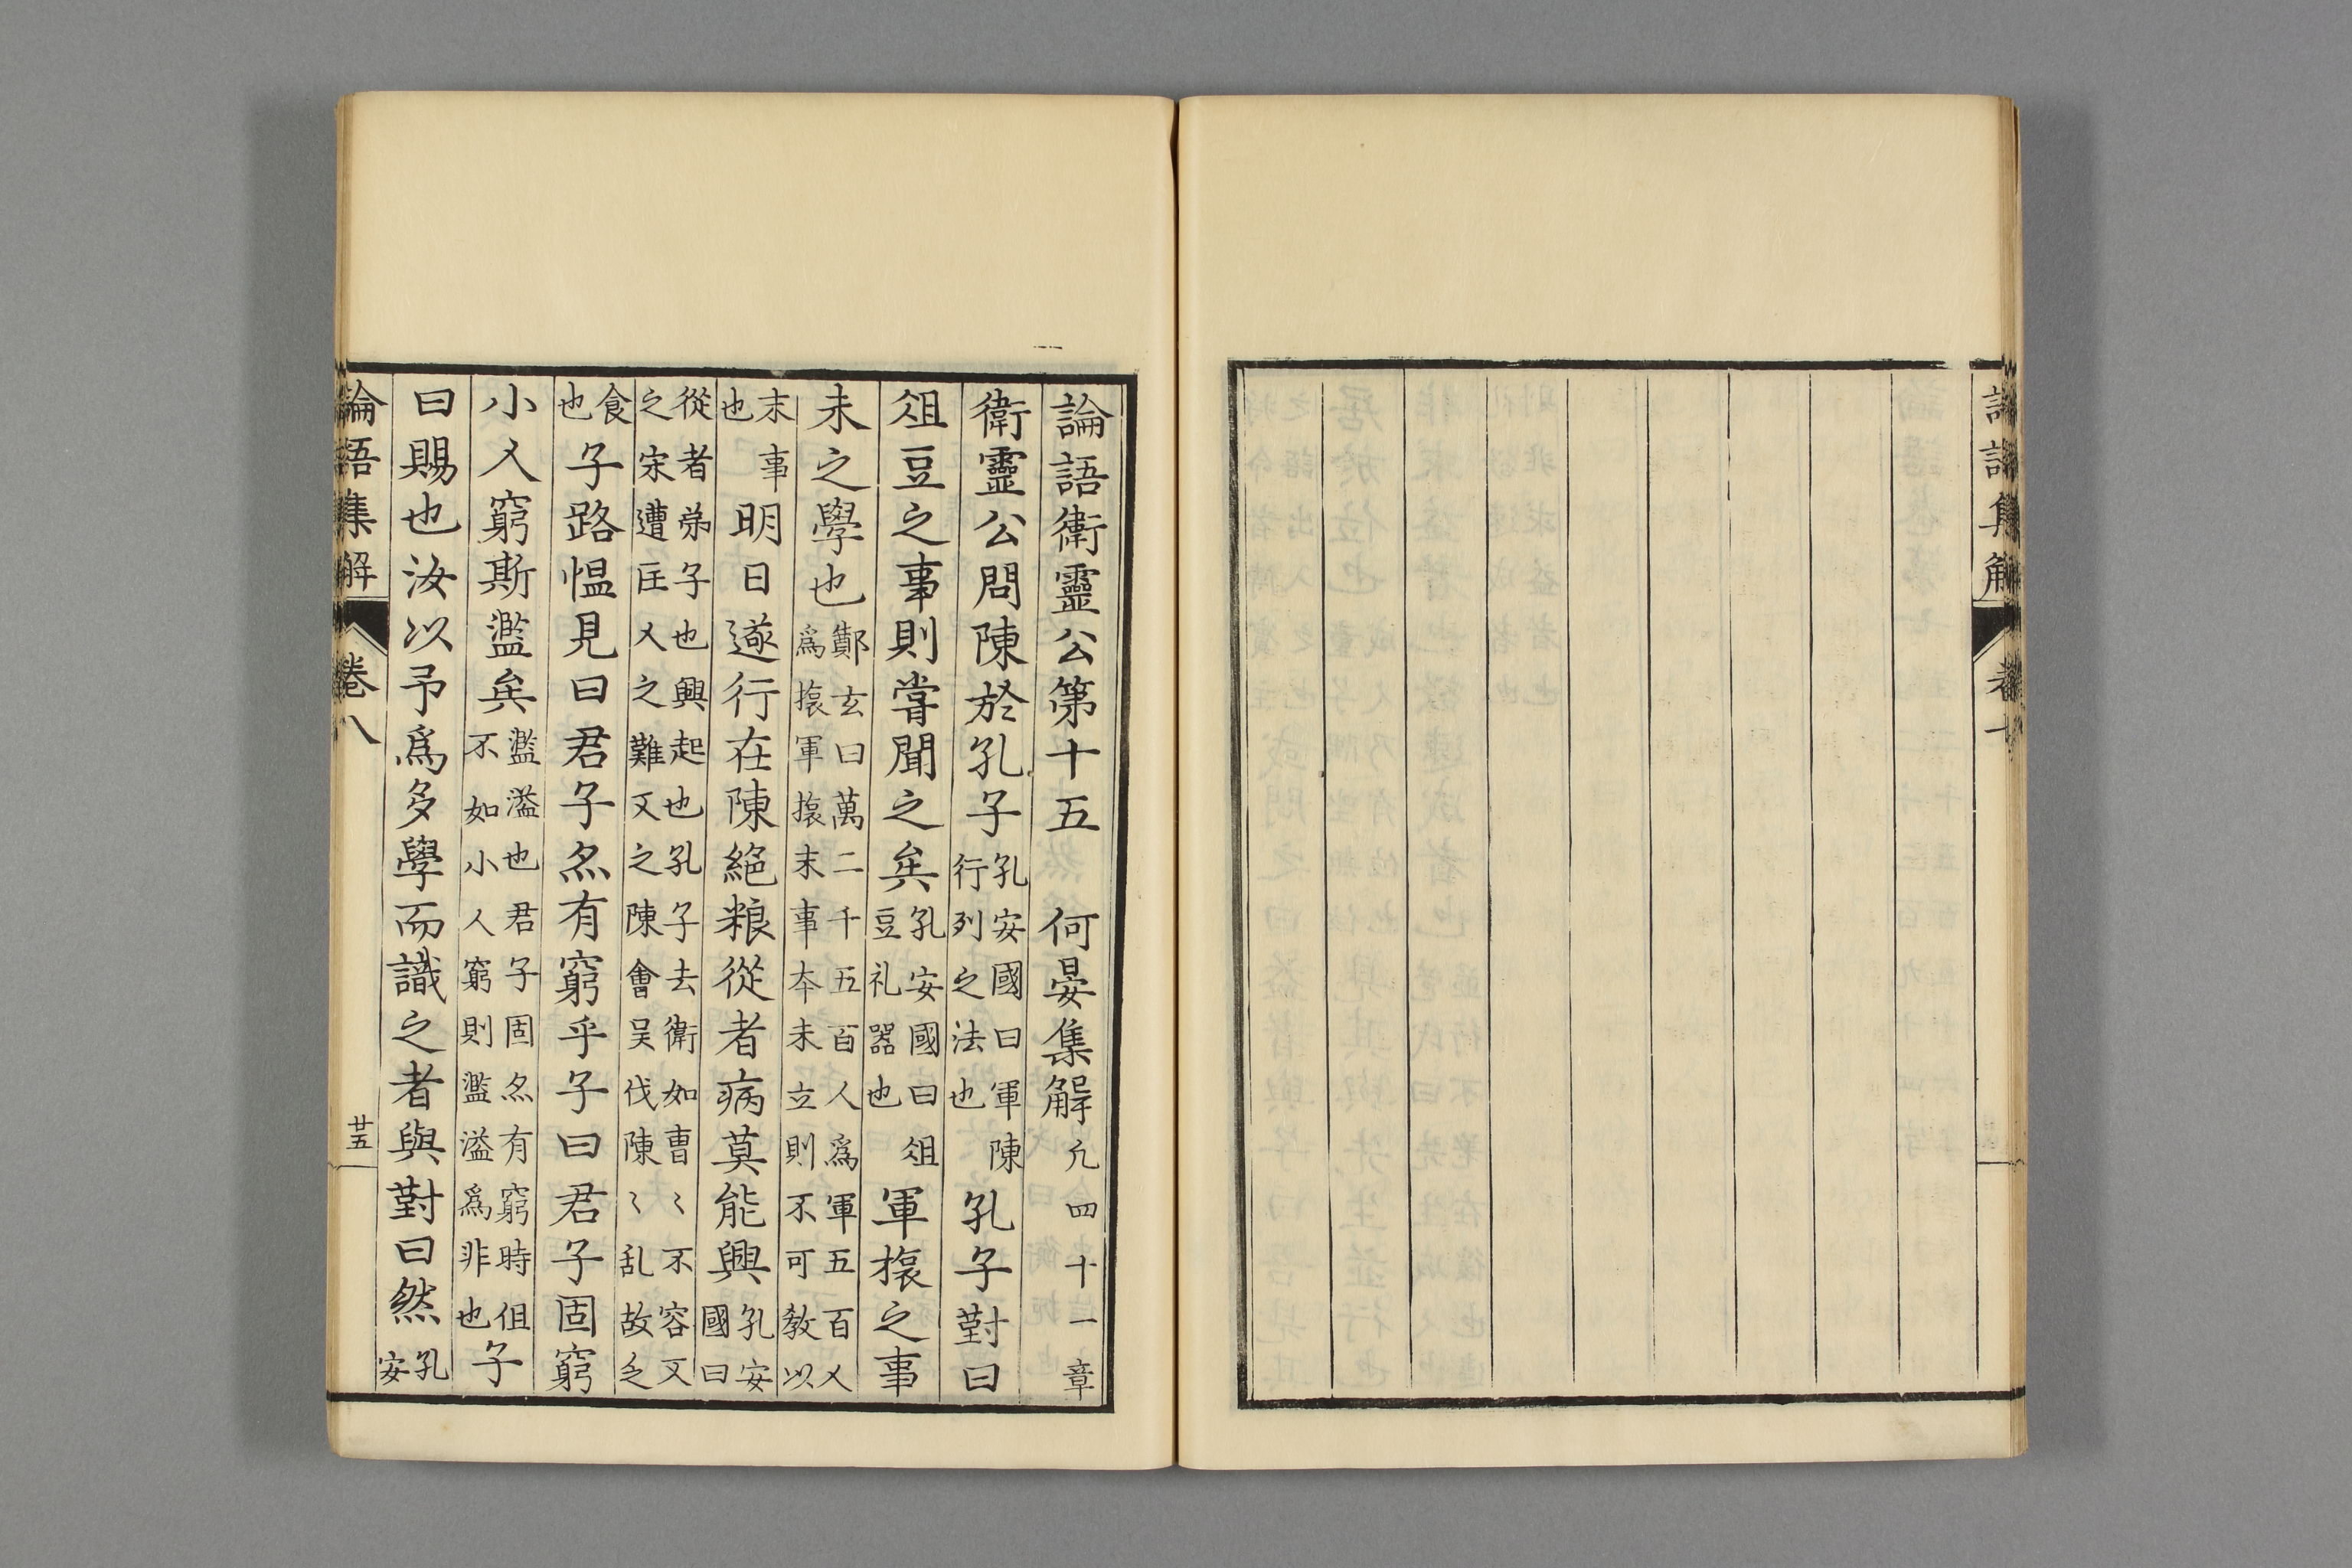 論語集解 卷七
論語衛靈公第十五 何晏集解 凢四十一章
衛靈公問陳於孔子孔安國曰軍陳行列之法也孔子對曰
俎豆之事則甞聞之矣孔安國曰俎豆礼器也軍旅之事
未之學也鄭玄曰萬二千五百人爲軍五百人爲旅軍旅末事本未立則不可教以
末事也明日遂行在陳絕粮從者病莫能興孔安國曰
從者弟子也興起也孔子去衛如曺〻不容又之宋遭匡人之難又之陳會吴伐陳〻乱故乏
食也子路愠見曰君子亦有窮乎子曰君子固窮
小人窮斯濫矣濫溢也君子固亦有窮時但不如小人窮則濫溢爲非也子
曰賜也汝以予爲多學而識之者與對曰然孔安
論語集解 卷八 廿五